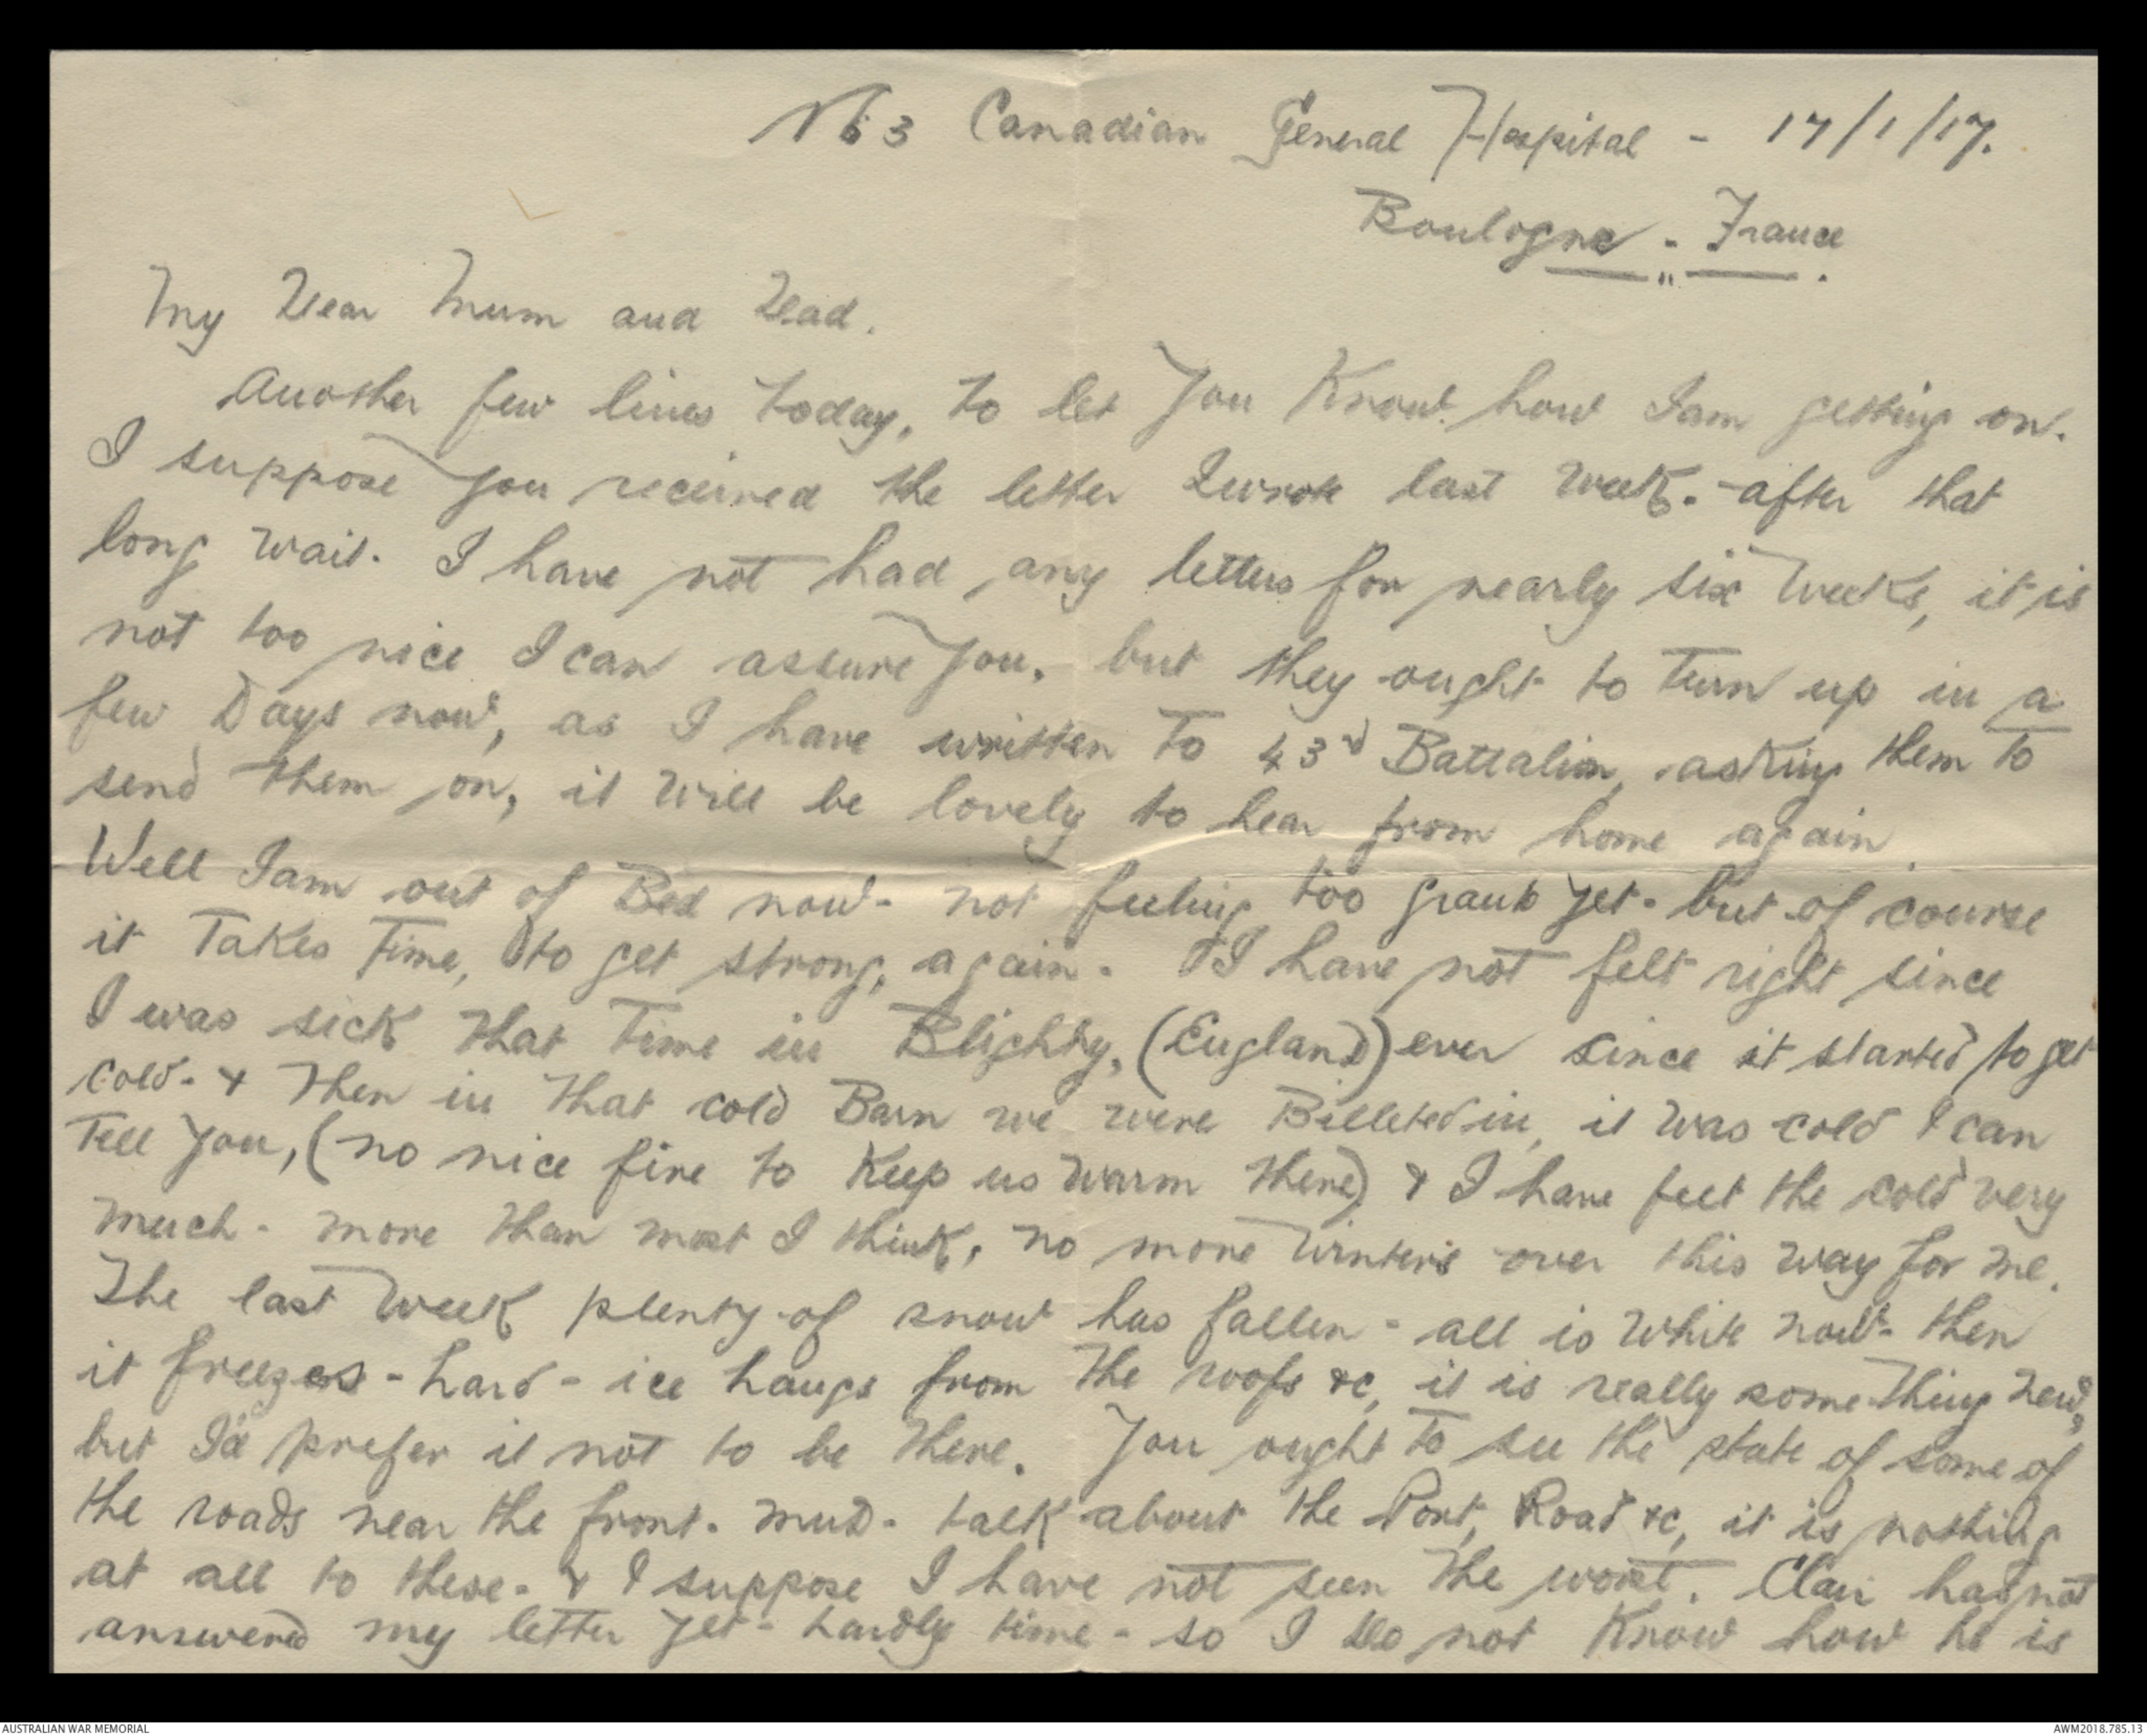 No 3 Canadian General Hospital - 17/1/17.
Boulogne - France
My Dear Mum and Dad.
Another few lines today, to let you know how I am getting on.
I suppose you received the letter I wrote last week. - after that
long wait. I have not had any letters for nearly six weeks, it is
not too nice I can assure you. but they ought to turn up in a
few Days now, as I have written to 43rd Battalion, asking them to
send them on, it will be lovely to hear from home again.
Well I am out of Bed now - not feeling too grand yet - but of course
it takes time, to get strong, again. I have not felt right since
I was sick that time in Blighty, (England) ever since it started to get
cold - & then in that cold Barn we were Billeted in, it was cold I can
tell you, (no nice fire to keep us warm there) & I have felt the cold very
much - more than most I think, no more winters over this way for me.
The last week plenty of snow has fallen - all is white now - then
it freezes - hard - ice hangs from the roofs &c, it is really something new,
but I'd prefer it not to be there. You ought to see the state of some of
the roads near the front. mud - talk about the Port, Road &c, it is nothing
at all to these - & I suppose I have not seen the worst. Clair has not
answered my letter yet - hardly time - so I do not know how he is
AUSTRALIAN WAR MEMORIAL
AWM2018.785.13